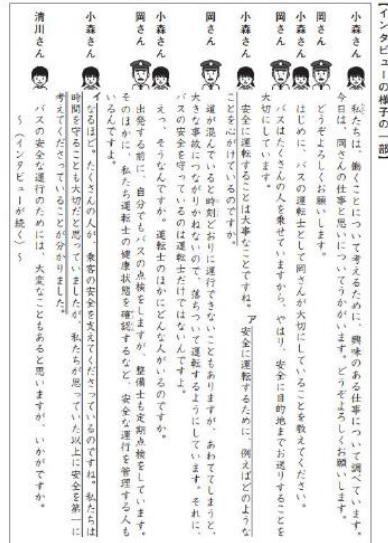 【インタビューの様子の一部】
小森さん
私たちは、働くことについて考えるために、興味のある仕事について調べています。
今日は、岡さんの仕事と思いについてうかがいます。どうぞよろしくお願いします。
岡さん
どうぞよろしくお願いします。
小森さん
はじめに、バスの運転士として岡さんが大切にしていることを教えてください。
岡さん
バスはたくさんの人を乗せていますから、やはり、安全に目的地までお送りすることを
大切にしています。
小森さん
安全に運転することは大事なことですね。ア安全に運転するために、例えばどのような
ことを心がけているのですか。
岡さん
道が混んでいると時刻どおりに運行できないこともありますが、あわててしまうと、
大きな事故につながりかねないので、落ちついて運転するようにしています。それに、
バスの安全を守っているのは運転士だけではないんですよ。
小森さん
えっ、そうなんですか。運転士のほかにどんな人がいるのですか。
岡さん
出発する前に、自分でもバスの点検をしますが、整備士も定期点検をしています。
そのほかに、私たち運転士の健康状態を確認するなど、安全な運行を管理する人も
いるんですよ。
小森さん
イなるほど。たくさんの人が、乗客の安全を支えてくださっているのですね。私たちは
時間を守ることも大切だと思っていましたが、私たちが思っていた以上に安全を第一に
考えてくださっていることが分かりました。
清川さん
バスの安全な運行のためには、大変なこともあると思いますが、いかがですか。
～(インタビューが続く)～